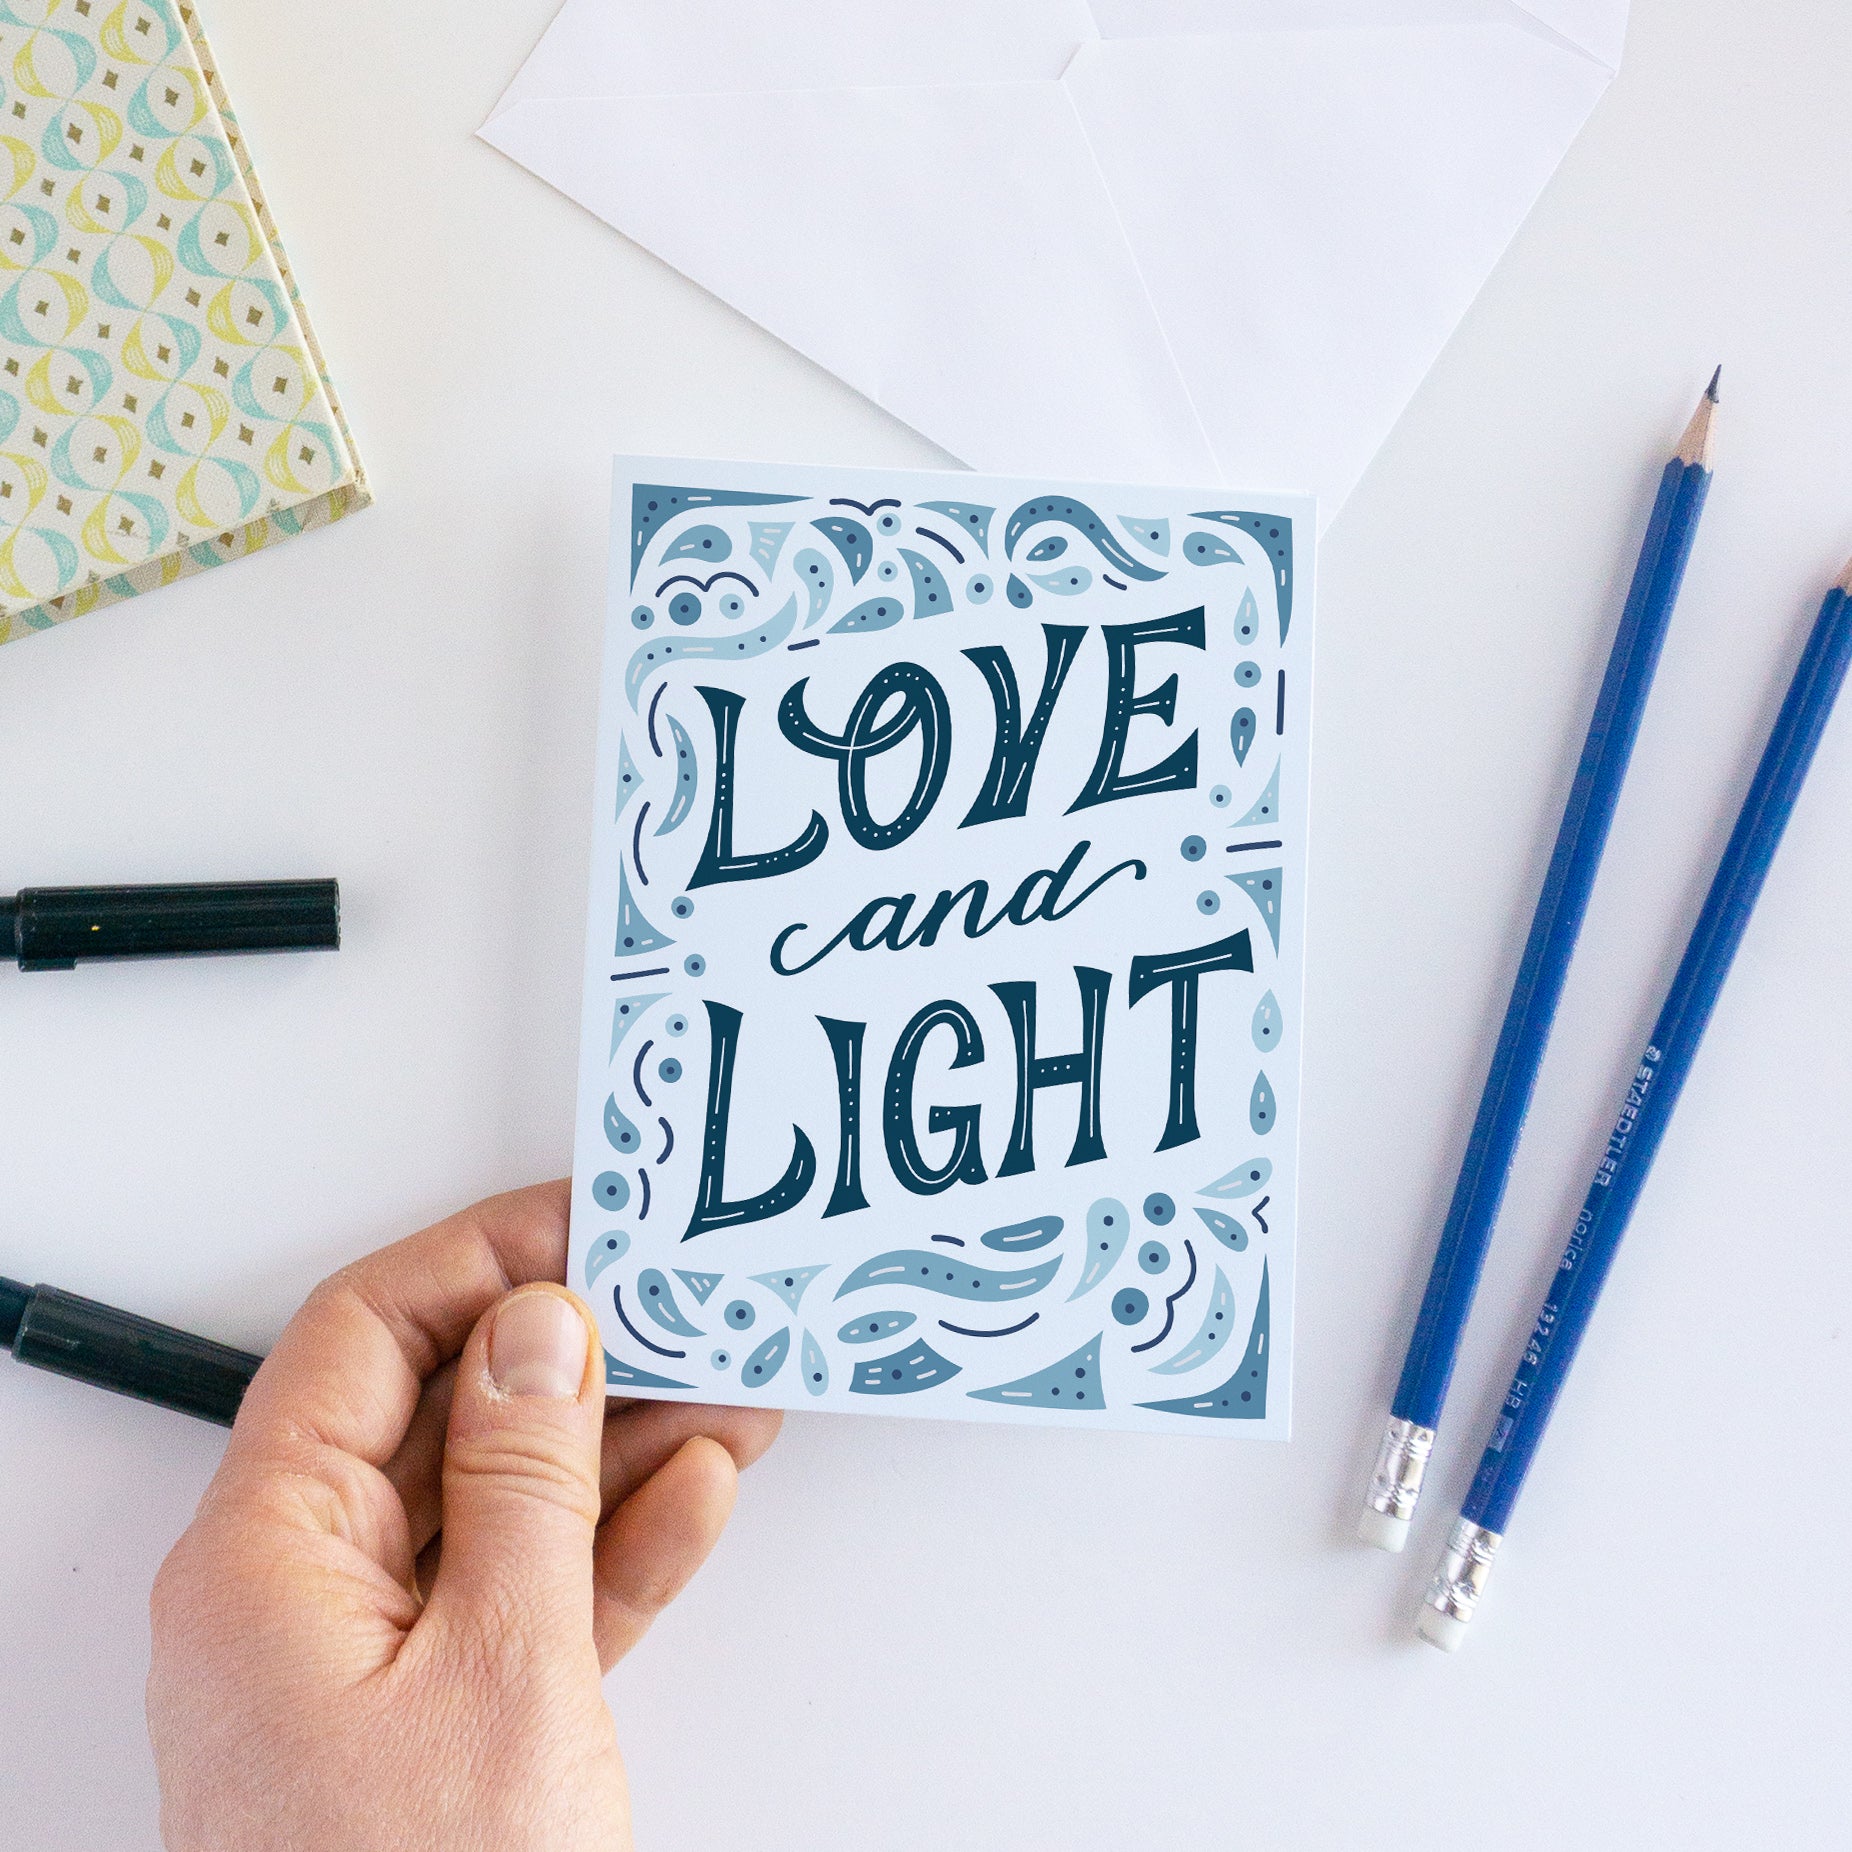 LOVE
and
LIGHT
STAEDTLER norica 132 46 HB